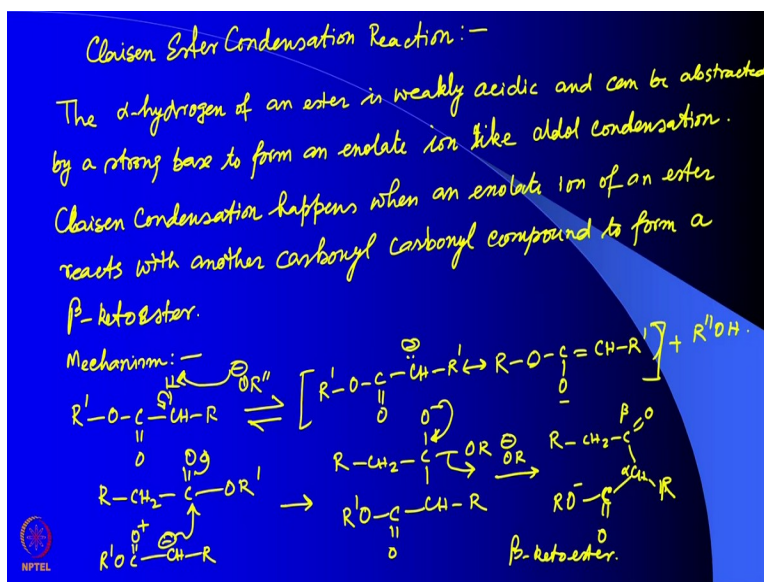 Claisen Ester Condensation Reaction:-
The α-hydrogen of an ester is weakly acidic and can be abstracted
by a strong base to form an enolate ion like aldol condensation.
Claisen Condensation happens when an enolate ion of an ester
reacts with another carbonyl carbonyl compound to form a
β-ketoester.
Mechanism:-
H ⊖OR''
R'-O-C(=O)-CH-R ⇌ [R'-O-C(=O)-⊖CH-R' ↔ R-O-C(-O⁻)=CH-R'] + R''OH.
R-CH₂-C(=O)-OR' → R-CH₂-C(O⁻)-OR ⊖OR → R-CH₂-C(=O) β
R'OC(=O⁺)-⊖CH-R R'O-C(=O)-CH-R RO⁻-C(=O)-αCH-R
β-ketoester.
NPTEL